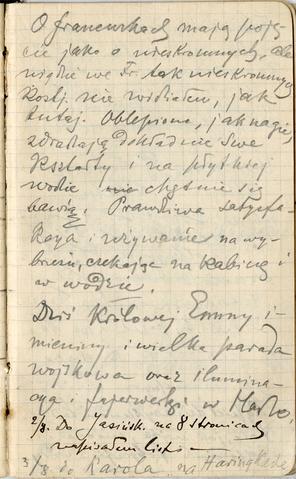 O francuskach mają poję-
cie jako o nieskromnych, ale
nigdzie we Fr. tak nieskromnych
kostj. nie widziałem, jak
tutaj. Oblepione, jak nagie,
zdradzają dokładnie swe
kształty i na płytkiej
wodzie chętnie się
bawią. Prawdziwa satysfa-
kcya i używanie na wy-
brzeżu, czekając na kabinę i
w wodzie.
Dziś Królowej Emmy i-
mieniny i wielka parada
wojskowa oraz ilumina-
cya i fajerwerki w
2/8. Do Jasińsk. na 8 stronicach
napisałem list
3/8. do Karola na Haringkade